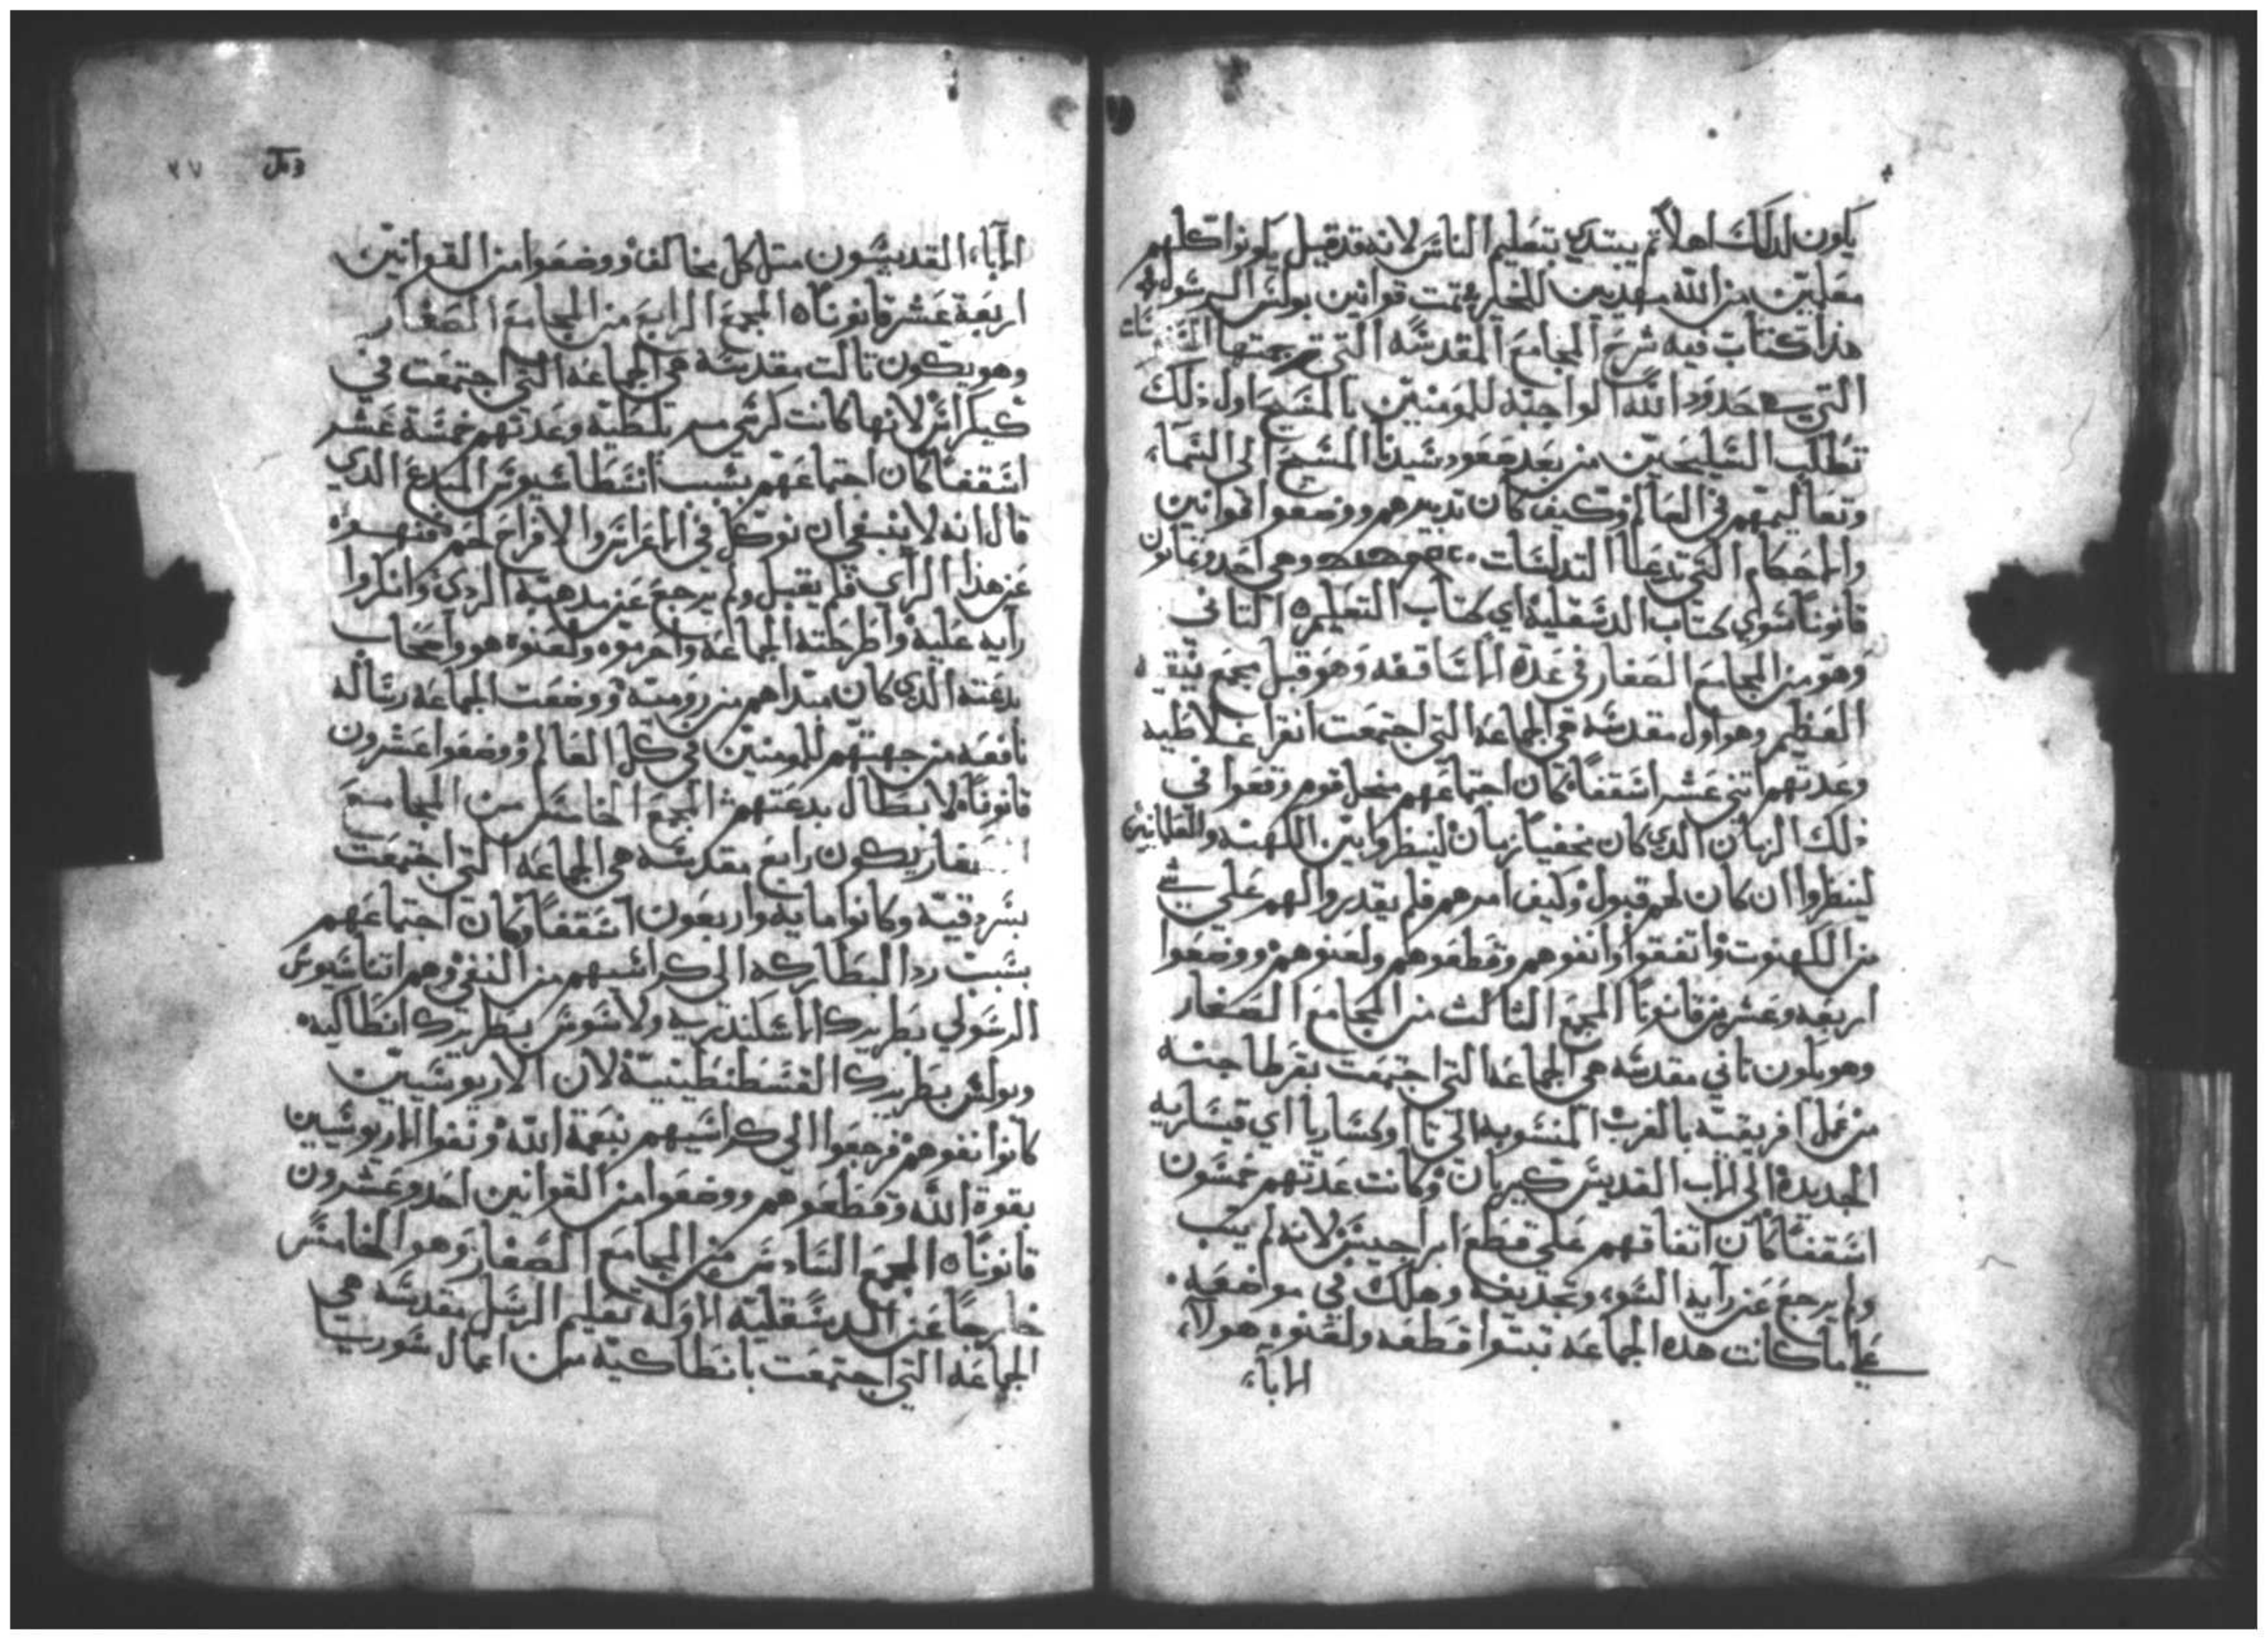 يكون لدلك اهلا ثم يبتدي بتعليم الناس لانه قد قيل يكونوا كلهم
معلمين من الله مهديين للخير تمت قوانين بولس الرسول
هذا كتاب فيه شرح المجامع المقدسه التي ترجمتها
التي حدود الله الواجبة للمومنين بالمسيح اول ذلك
تطلب السليحيين من بعد صعود سيدنا المسيح الى السماء
وتعاليمهم في العالم وكيف كان تدبيرهم ووضعوا قوانين
والاحكام التي تدعا التدلسات وهي احد وثمانون
قانونا سوي كتاب الدسقلية اي كتاب التعليم التاني
وهو من المجامع الصغار في عدة الاساقفه وهو قبل مجمع نيقيه
العظيم وهو اول مقدسه هي الجماعة التي اجتمعت انقرا غلاطيه
وعدتهم اتني عشر اسقفا كان اجتماعهم من اجل قوم وقعوا في
ذلك الزمان الدي كان لينظروا بين الكهنة والعلمانيين
لينظروا ان كان لهم قبول وكيف امرهم فلم يقدروا لهم على شي
من الكهنوت واتفقوا وانفوهم وقطعوهم ولعنوهم ووضعوا
اربعه وعشرين قانونا المجمع الثالث من المجامع الصغار
وهو يكون تاني مقدسه هي الجماعة التي اجتمعت بقرطاجنه
من عمل افريقية بالغرب المنسوبه الى نااوكساريا اي قيساريه
الجديدة الى الاب القديس كبريان وكانت عدتهم خمسون
اسقفا كان اتفاقهم على قطع ابراجيس لانه لم يتب
ولم يرجع عن رايه السوء وتجديفه وهلك في مواضعه
على ما كانت هده الجماعة تبتوا قطعه ولعنوه هولاء
الاباء
٢٧
الاباء القديسون متل كل مخالف ووضعوا من القوانين
اربعة عشر قانونا المجمع الرابع من المجامع الصغار
وهو يكون تالت مقدسة هي الجماعة التي اجتمعت في
لانها كانت كرسي ملطية وعدتهم خمسة عشر
اسقفا كان اجتماعهم بسبب انسطاسيوس المبدع الدي
قال انه لا ينبغي ان نوكل في الاعراس والافراح لحم فنهوه
عن هذا الراي فلم يقبل ولم يرجع عن مدهبه الردي وانكروا
رايه عليه واطرحته الجماعة واحرموه ولعنوه هو واصحاب
بدعته الدي كان مبداهم من رومية ووضعت الجماعة رسالة
نافعه من جهتهم للمومنين في كل العالم ووضعوا عشرون
قانونا لابطال بدعتهم المجمع الخامس من المجامع
الصغار يكون رابع مقدسة هي الجماعة التي اجتمعت
بسردقية وكانوا مايه واربعون اسقفا وكان اجتماعهم
بسبب رد البطاركه الى كراسيهم من النفي وهم اتناسيوس
الرسولي بطريرك الاسكندريه ولاسوس بطريرك انطاكيه
وبولس بطريرك القسطنطينية لان الاريوسيين
كانوا نفوهم فرجعوا الى كراسيهم بنعمة الله ونفوا الاريوسيين
بقوة الله وقطعوهم ووضعوا من القوانين احد وعشرون
قانونا المجمع السادس من المجامع الصغار وهو الخامس
خارجا عن الدسقلية الاولة تعليم الرسل مقدسة هي
الجماعة التي اجتمعت بانطاكية من اعمال سوريا